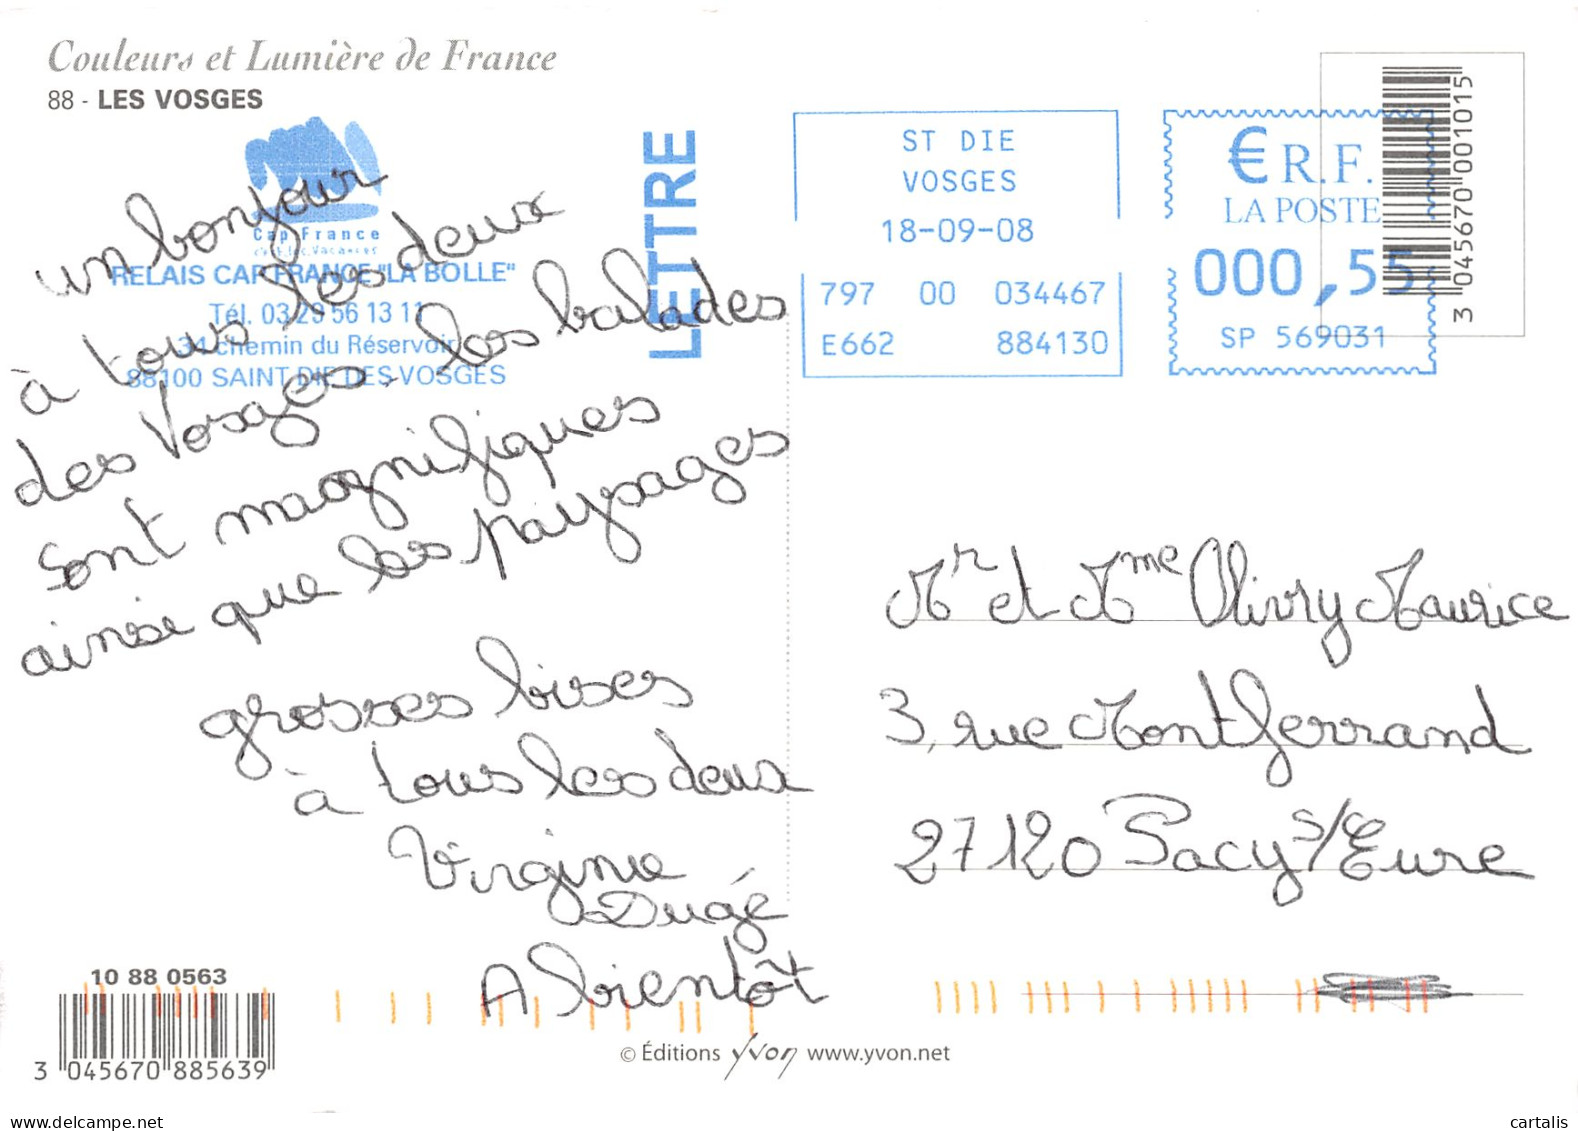 Couleurs et Lumière de France
88 - LES VOSGES
Cap France
RELAIS CAP FRANCE "LA BOLLE"
Tél. 03 29 56 13 11
34 chemin du Réservoir
88100 SAINT DIE DES VOSGES
LETTRE
ST DIE
VOSGES
18-09-08
797 00 034467
E662 884130
€ R.F.
LA POSTE
000,55
SP 569031
3 045670 001015
un bonjour
à tous les deux
des Vosges, les balades
sont magnifiques
ainsi que les paysages
grosses bises
à tous les deux
Virginie
Dugé
A bientôt
Mr et Mme Olivry Maurice
3, rue Montferrand
27120 Pacy s/Eure
10 88 0563
3 045670 885639
© Éditions Yvon www.yvon.net
cartalis